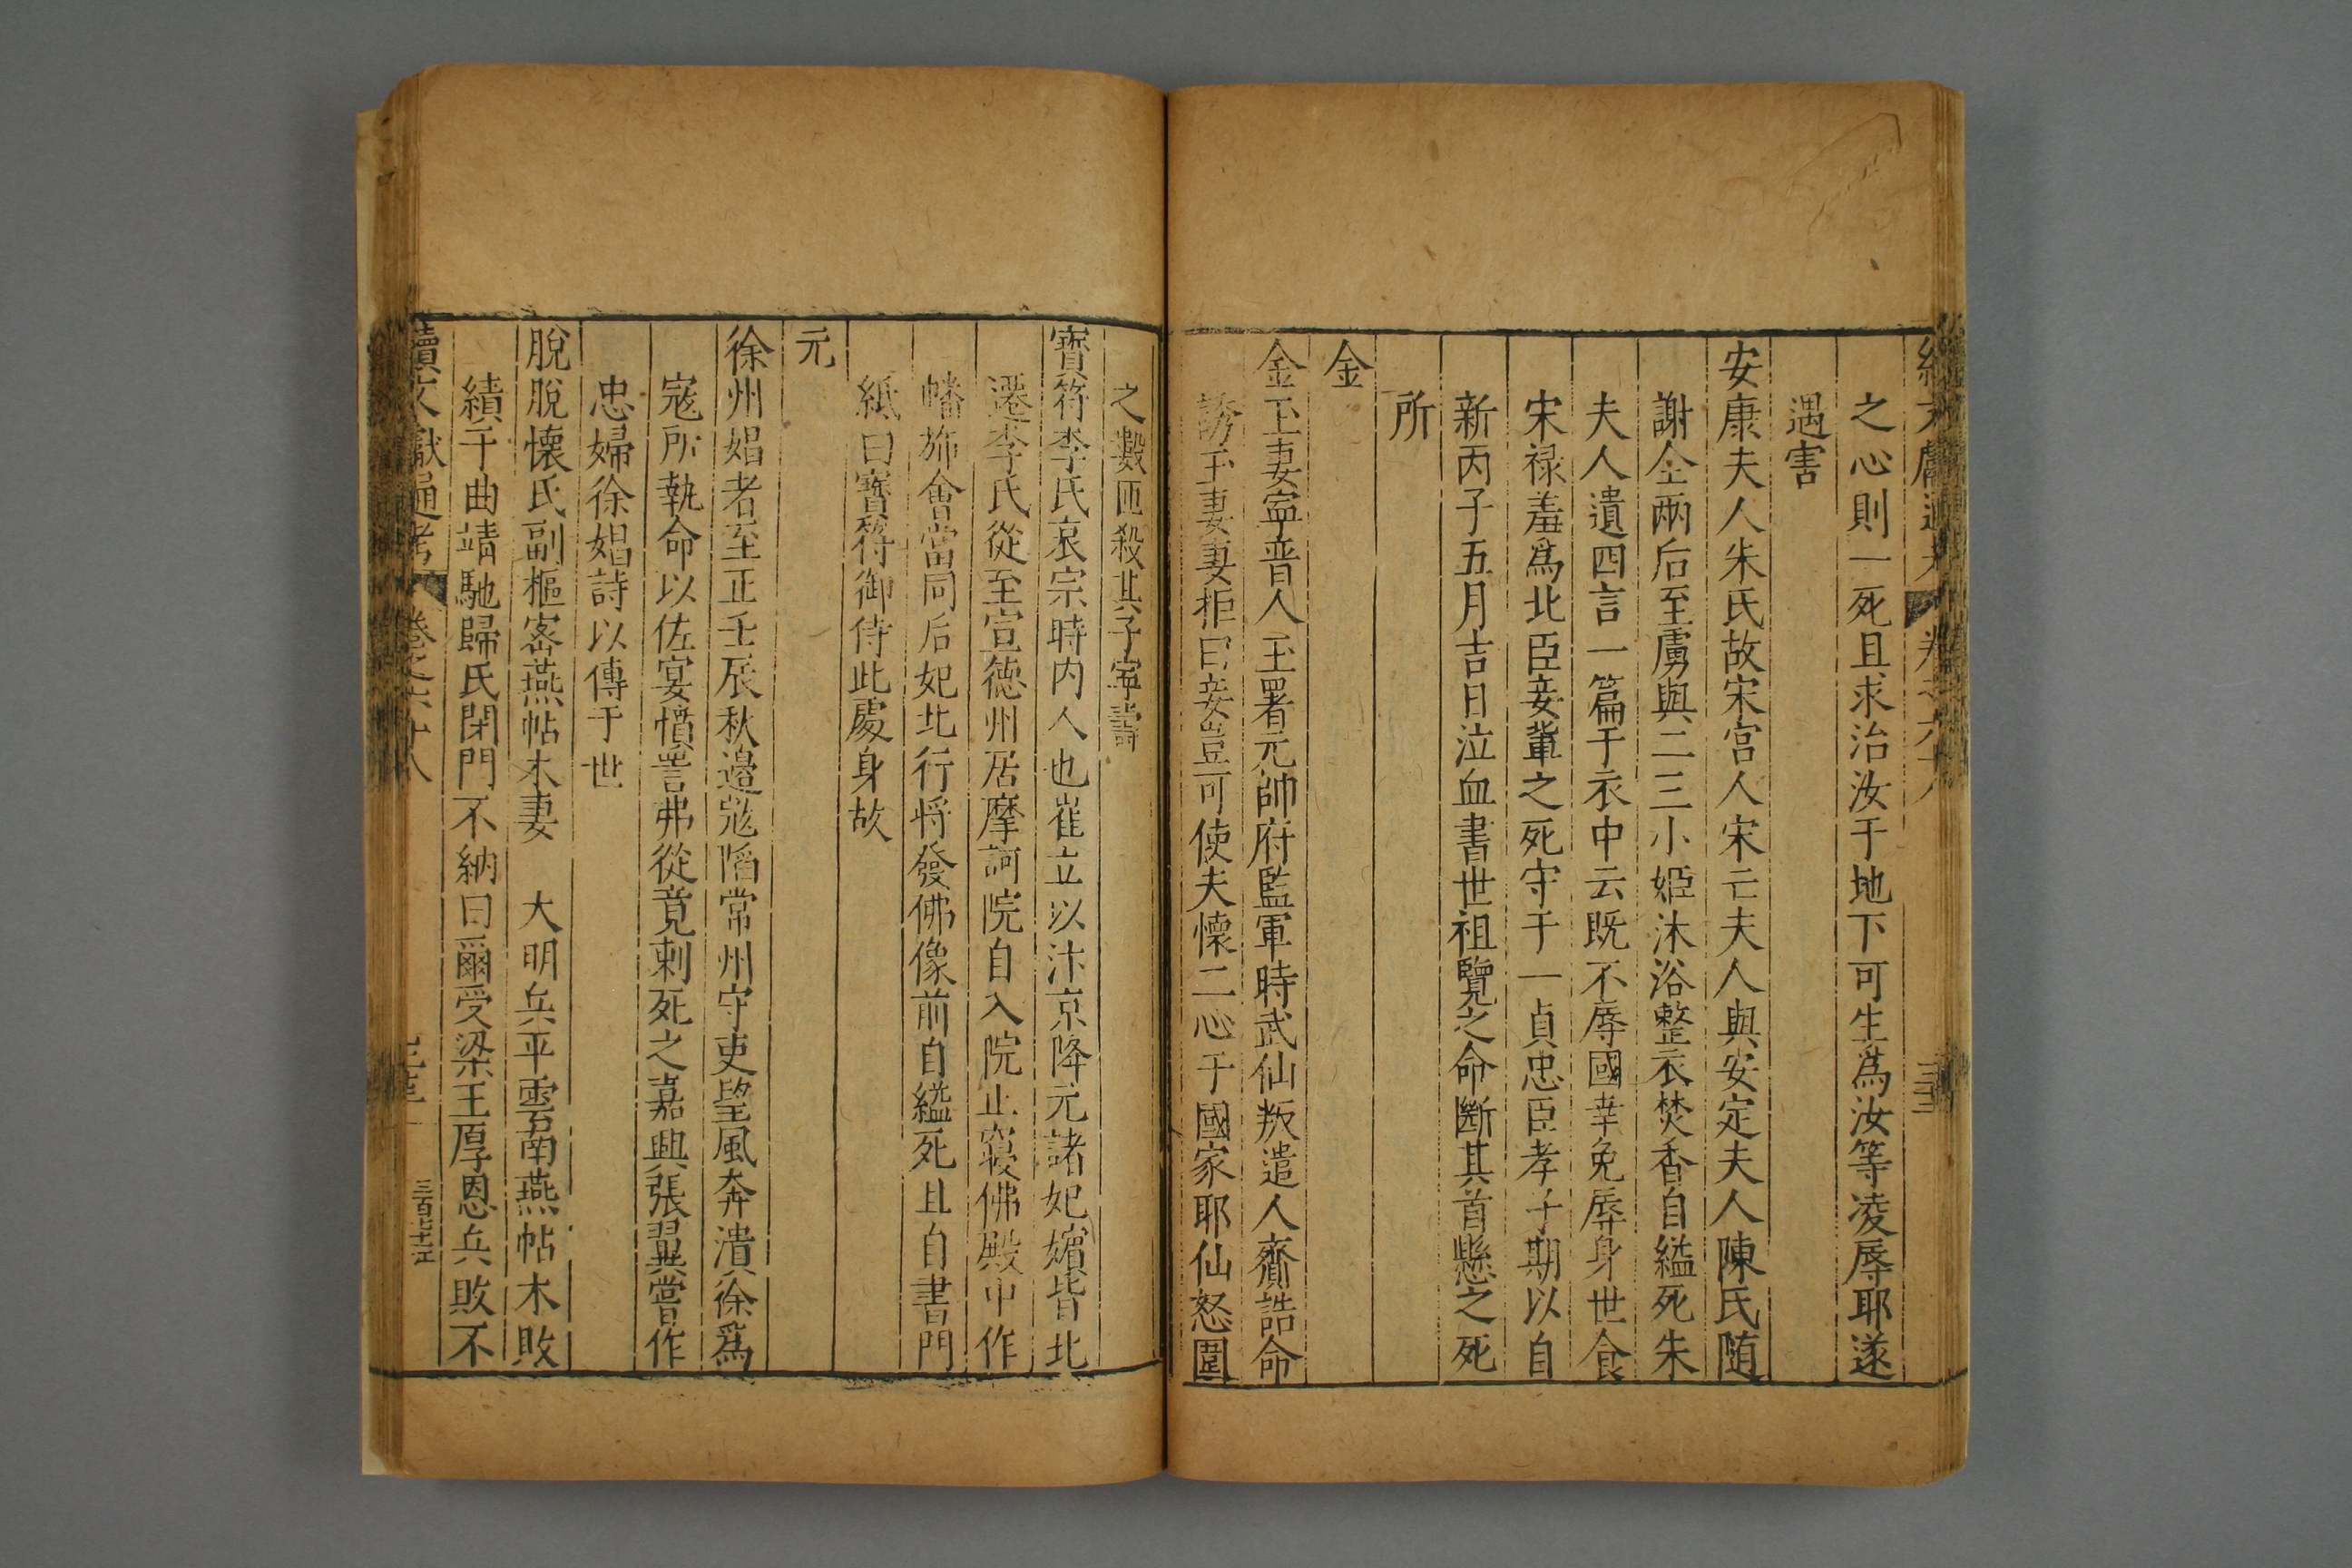 續文獻通考 卷之六十八
之心則一死且求治汝于地下可生爲汝等凌辱耶遂
遇害
安康夫人朱氏故宋宫人宋亡夫人與安定夫人陳氏随
謝全兩后至虜與二三小姬沐浴整衣焚香自縊死朱
夫人遺四言一篇于衣中云既不辱國幸免辱身世食
宋禄羞爲北臣妾軰之死守于一貞忠臣孝子期以自
新丙子五月吉日泣血書世祖覽之命斷其首懸之死
所
金
金王妻寍晋人王署元帥府監軍時武仙叛遣人齎誥命
誘王妻妻拒曰妾豈可使夫懷二心于國家耶仙怒圍
之數匝殺其子寍壽
寳符李氏哀宗時内人也崔立以汴京降元諸妃嬪皆北
遷李氏從至宣德州居摩訶院自入院止寢佛殿中作
幡斾會當同后妃北行将發佛像前自縊死且自書門
紙曰寳符御侍此處身故
元
徐州娼者至正壬辰秋邉寇陷常州守吏望風奔潰徐爲
寇所執命以佐宴憤詈弗從竟刺死之嘉興張翼嘗作
忠婦徐娼詩以傳于世
脫脫懷氏副樞宻燕帖木妻 大明兵平雲南燕帖木敗
績于曲靖馳歸氏閉門不納曰爾受梁王厚恩兵敗不
續文獻通考 卷之六十八